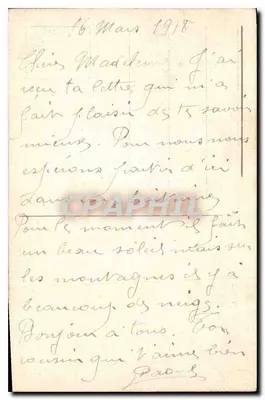 16 Mars 1918
Chère Madeleine. J'ai
reçu ta lettre qui m'a
fait plaisir de te savoir
mieux. Pour nous nous
espérons partir d'ici
dans
CPAPHIL
Pour le moment il fait
un beau soleil mais sur
les montagnes il y a
beaucoup de neige.
Bonjour à tous. Ton
cousin qui t'aime bien
Raoul